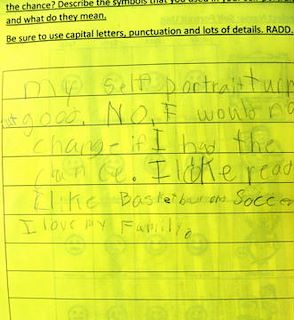 the chance? Describe the symbols that you used in your self portr
and what do they mean.
Be sure to use capital letters, punctuation and lots of details. RADD.
my self portrait turn
out good. No, I would no
chang- if I had the
chance. I like read
I like Basketball and Socce
I love my Family.